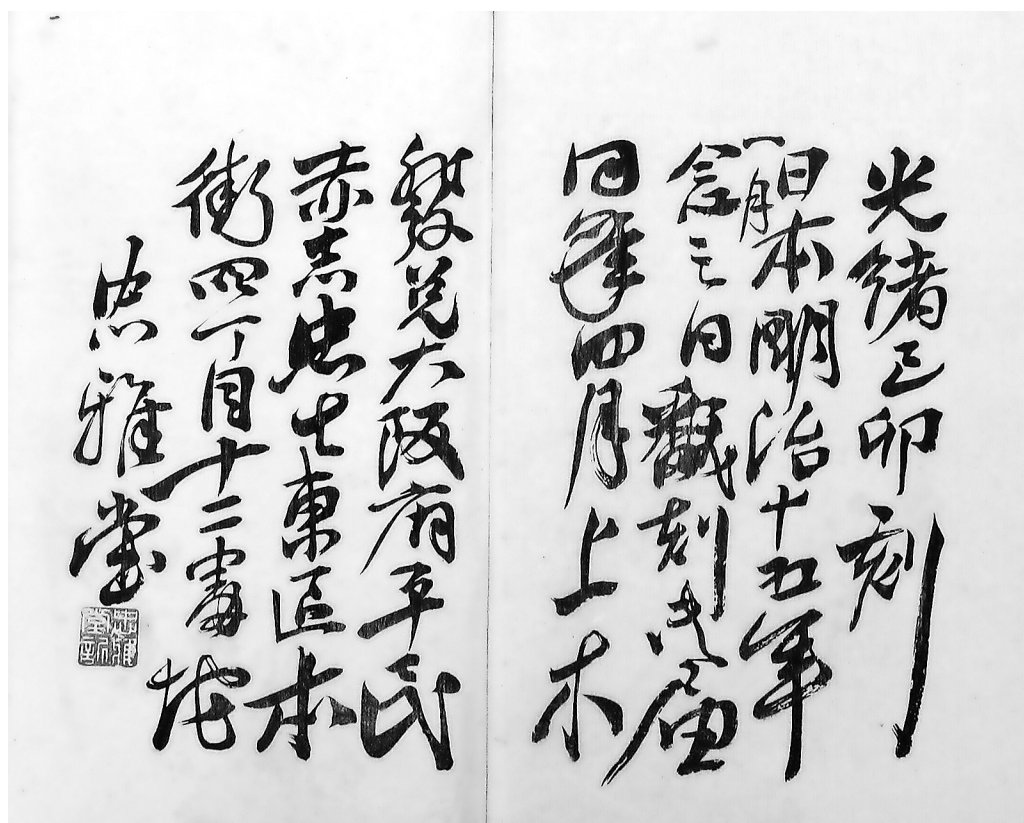 光緒己卯刻
日本明治十五年
一月
念三日翻刻御届
同年四月上木
發兌大阪府平民
赤志忠七東區本
街四丁目十二番地
忠雅堂